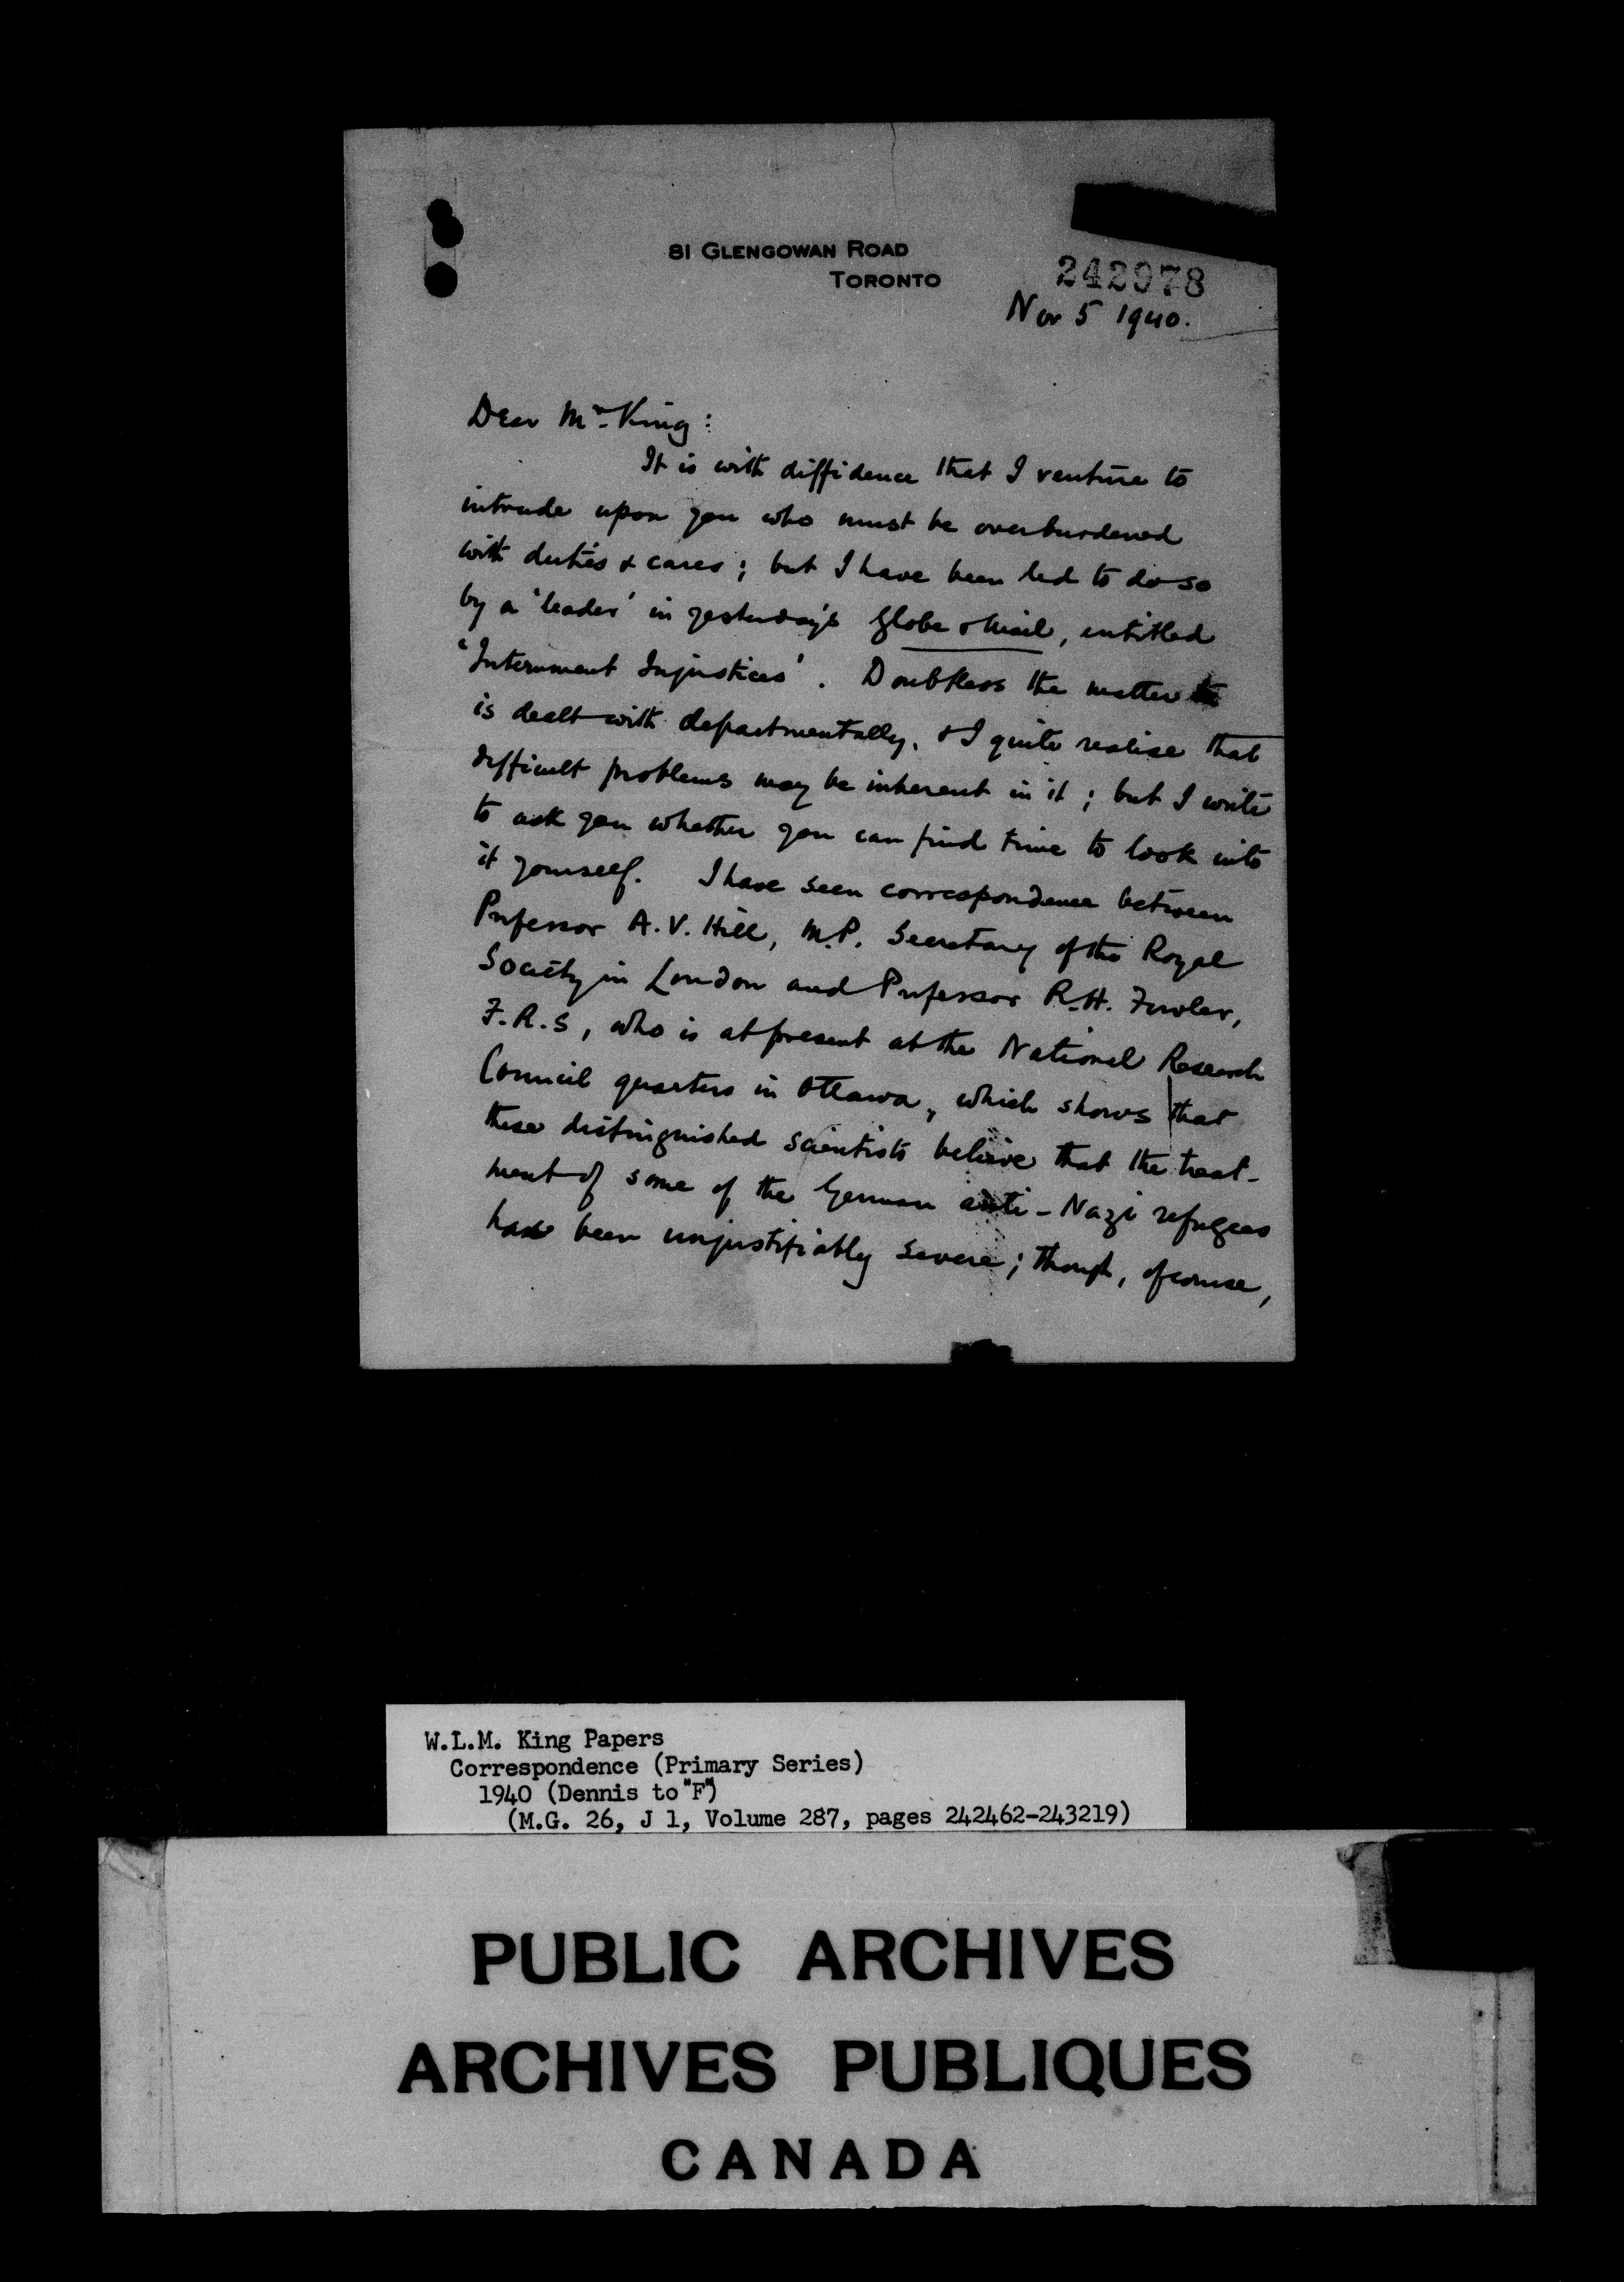 81 GLENGOWAN ROAD
TORONTO
242978
Nov 5 1940.
Dear Mr. King:
It is with diffidence that I venture to
intrude upon you who must be overburdened
with duties & cares; but I have been led to do so
by a 'leader' in yesterday's Globe & Mail, entitled
'Internment Injustices'. Doubtless the matter
is dealt with departmentally, & I quite realise that
difficult problems may be inherent in it; but I write
to ask you whether you can find time to look into
it yourself. I have seen correspondence between
Professor A.V. Hill, M.P. Secretary of the Royal
Society in London and Professor R.H. Fowler,
F.R.S, who is at present at the National Research
Council quarters in Ottawa, which shows that
these distinguished scientists believe that the treat-
ment of some of the German anti-Nazi refugees
has been unjustifiably severe; though, of course,
W.L.M. King Papers
Correspondence (Primary Series)
1940 (Dennis to "F")
(M.G. 26, J 1, Volume 287, pages 242462-243219)
PUBLIC ARCHIVES
ARCHIVES PUBLIQUES
CANADA